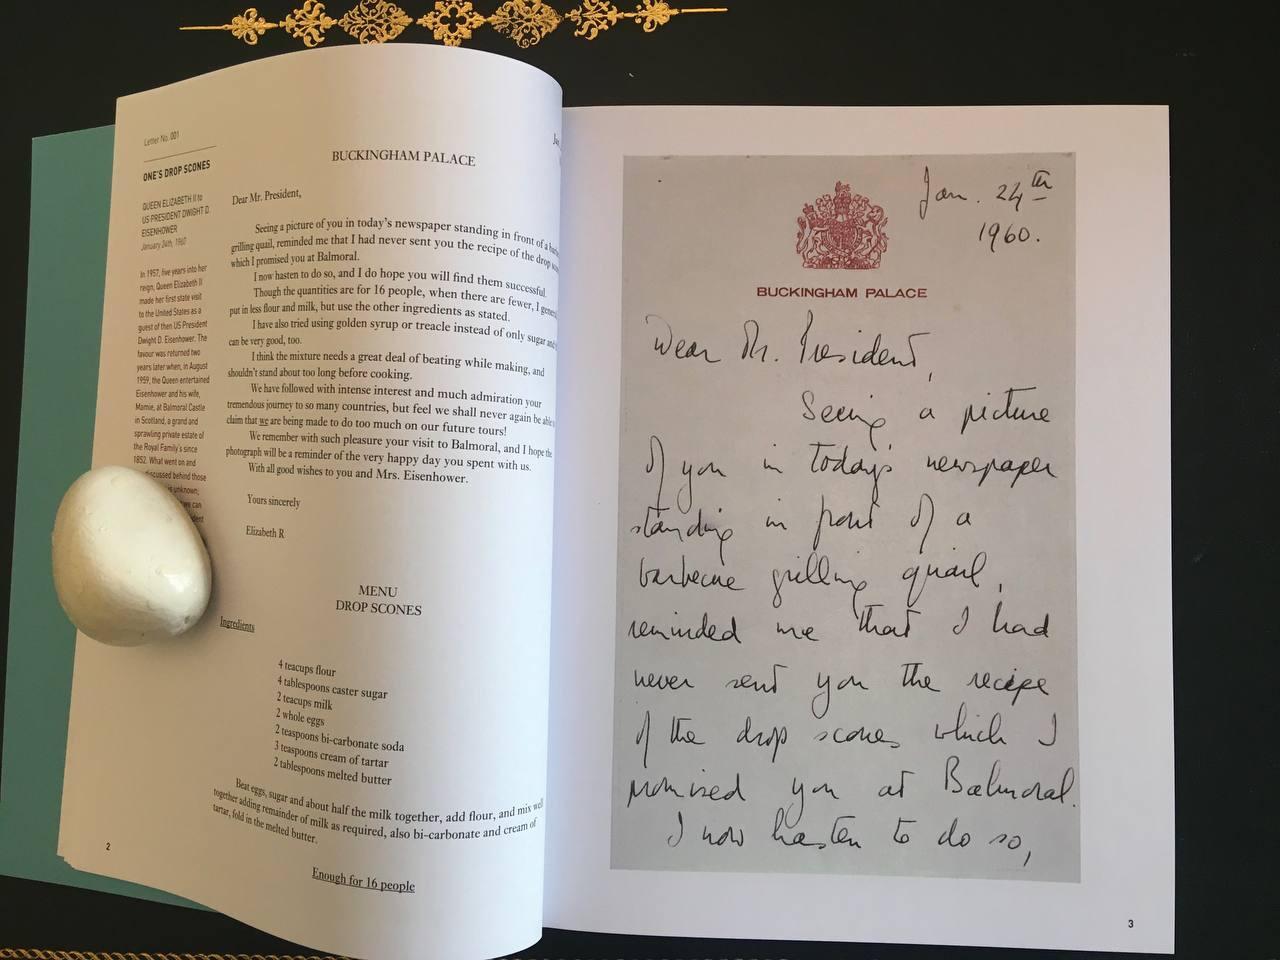 Letter No. 001
ONE'S DROP SCONES
QUEEN ELIZABETH II to
US PRESIDENT DWIGHT D.
EISENHOWER
January 24th, 1960
In 1957, five years into her
reign, Queen Elizabeth II
made her first state visit
to the United States as a
guest of then US President
Dwight D. Eisenhower. The
favour was returned two
years later when, in August
1959, the Queen entertained
Eisenhower and his wife,
Mamie, at Balmoral Castle
in Scotland, a grand and
sprawling private estate of
the Royal Family's since
1852. What went on and
discussed behind those
is unknown;
we can
2
BUCKINGHAM PALACE
Dear Mr. President,
Seeing a picture of you in today's newspaper standing in front of a
grilling quail, reminded me that I had never sent you the recipe of the drop
which I promised you at Balmoral.
I now hasten to do so, and I do hope you will find them successful.
Though the quantities are for 16 people, when there are fewer, I
put in less flour and milk, but use the other ingredients as stated.
I have also tried using golden syrup or treacle instead of only sugar and
can be very good, too.
I think the mixture needs a great deal of beating while making, and
shouldn't stand about too long before cooking.
We have followed with intense interest and much admiration your
tremendous journey to so many countries, but feel we shall never again be able
claim that we are being made to do too much on our future tours!
We remember with such pleasure your visit to Balmoral, and I hope the
photograph will be a reminder of the very happy day you spent with us.
With all good wishes to you and Mrs. Eisenhower.
Yours sincerely
Elizabeth R
MENU
DROP SCONES
Ingredients
4 teacups flour
4 tablespoons caster sugar
2 teacups milk
2 whole eggs
2 teaspoons bi-carbonate soda
3 teaspoons cream of tartar
2 tablespoons melted butter
Beat eggs, sugar and about half the milk together, add flour, and mix well
together adding remainder of milk as required, also bi-carbonate and cream of
tartar, fold in the melted butter.
Enough for 16 people
Jan. 24th
1960.
BUCKINGHAM PALACE
Dear Mr. President,
Seeing a picture
of you in today's newspaper
standing in front of a
barbecue grilling quail,
reminded me that I had
never sent you the recipe
of the drop scones which I
promised you at Balmoral.
I now hasten to do so,
3